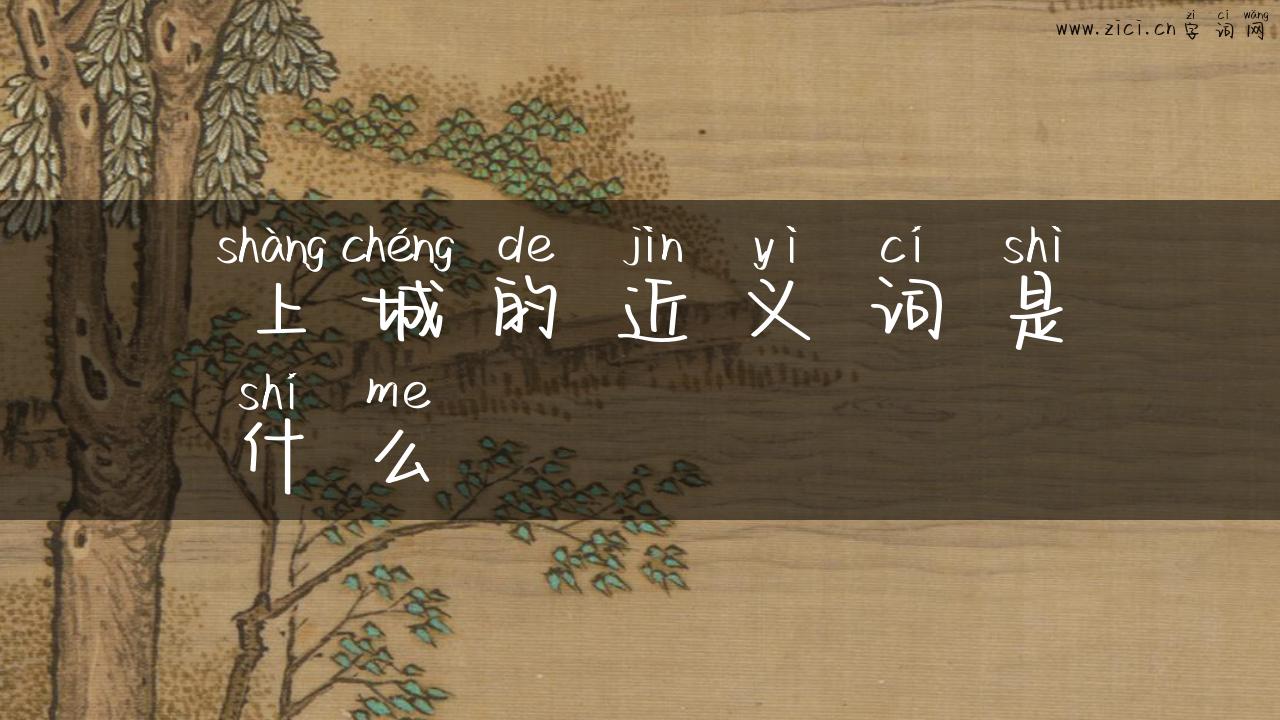 zì cí wǎng
www.zici.cn 字词网
shàng chéng de jìn yì cí shì
上城的近义词是
shí me
什么